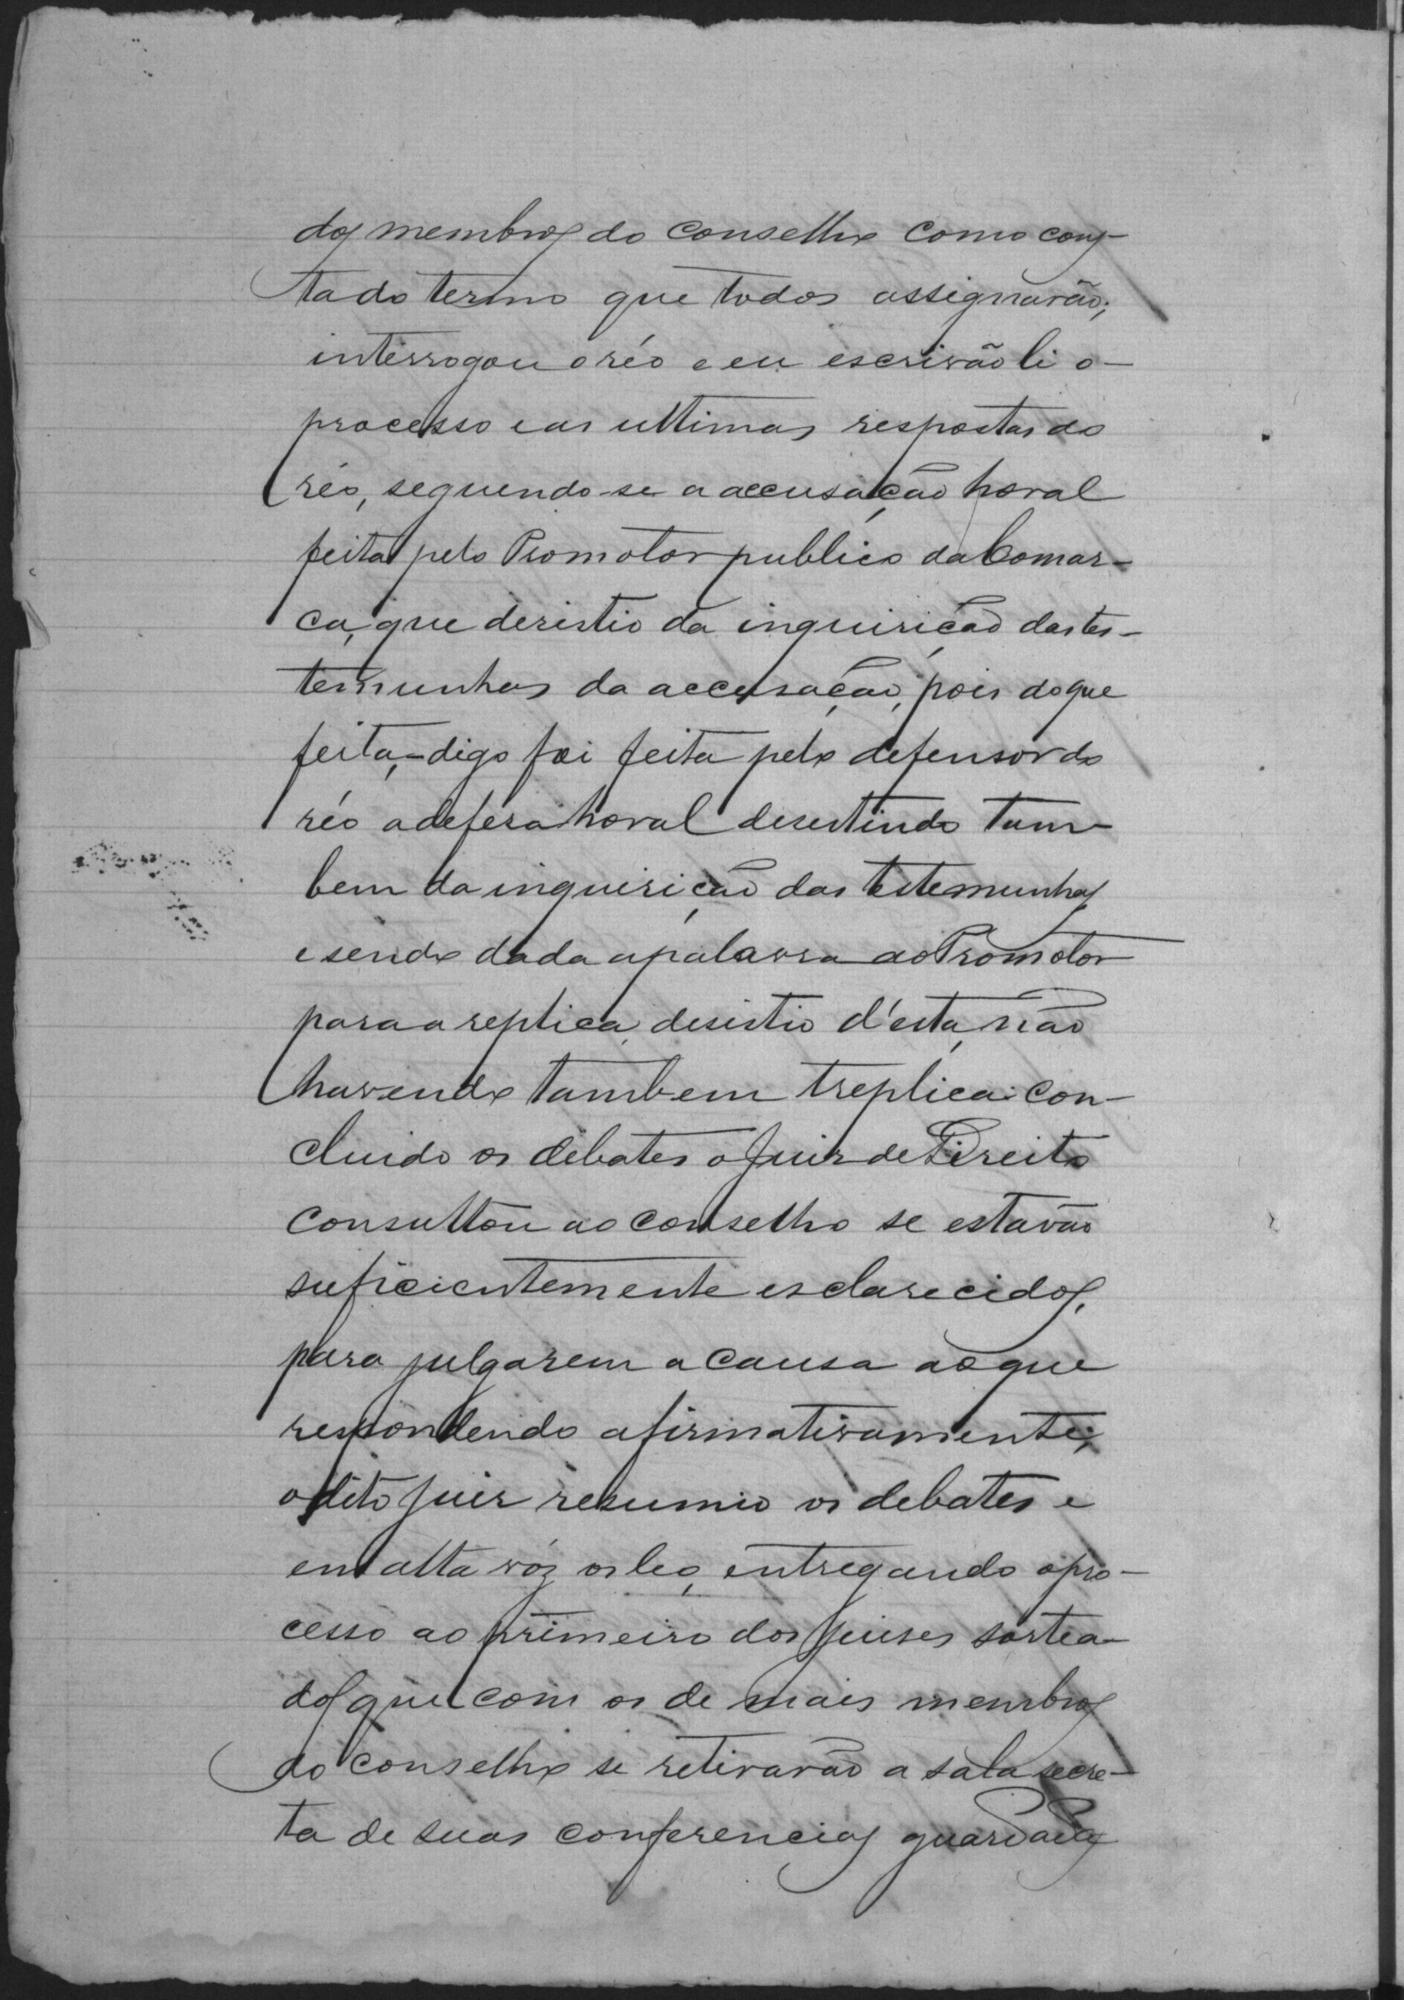 dos membros do conselho como cons-
ta do termo que todos assignarão;
interrogou o réo e eu escrivão li o
processo e as ultimas respostas do
réo, seguendo-se a accusação horal
feita pelo Promotor publico da Comar-
ca, que deristio da inquirição das tes-
temunhas da accusação, pois do que
feita,-digo foi feita pelo defensor do
réo a defesa horal desestindo tam-
bem da inquirição das testemunhas
e sendo dada a palavra ao Promotor
para a replica, desistio d'esta, não
havendo tambem treplica: con-
cluido os debates o Juis de Direito
consultou ao conselho se estavão
suficientemente esclarecidos,
para julgarem a causa ao que
respondendo afirmativamente;
o dito Juis resumio os debates e
em alta vóz os leo, entregando o pro-
cesso ao primeiro dos Juises sortea-
dos que com os de mais membros
do conselho se retirarão a sala secre-
ta de suas conferencias guardada